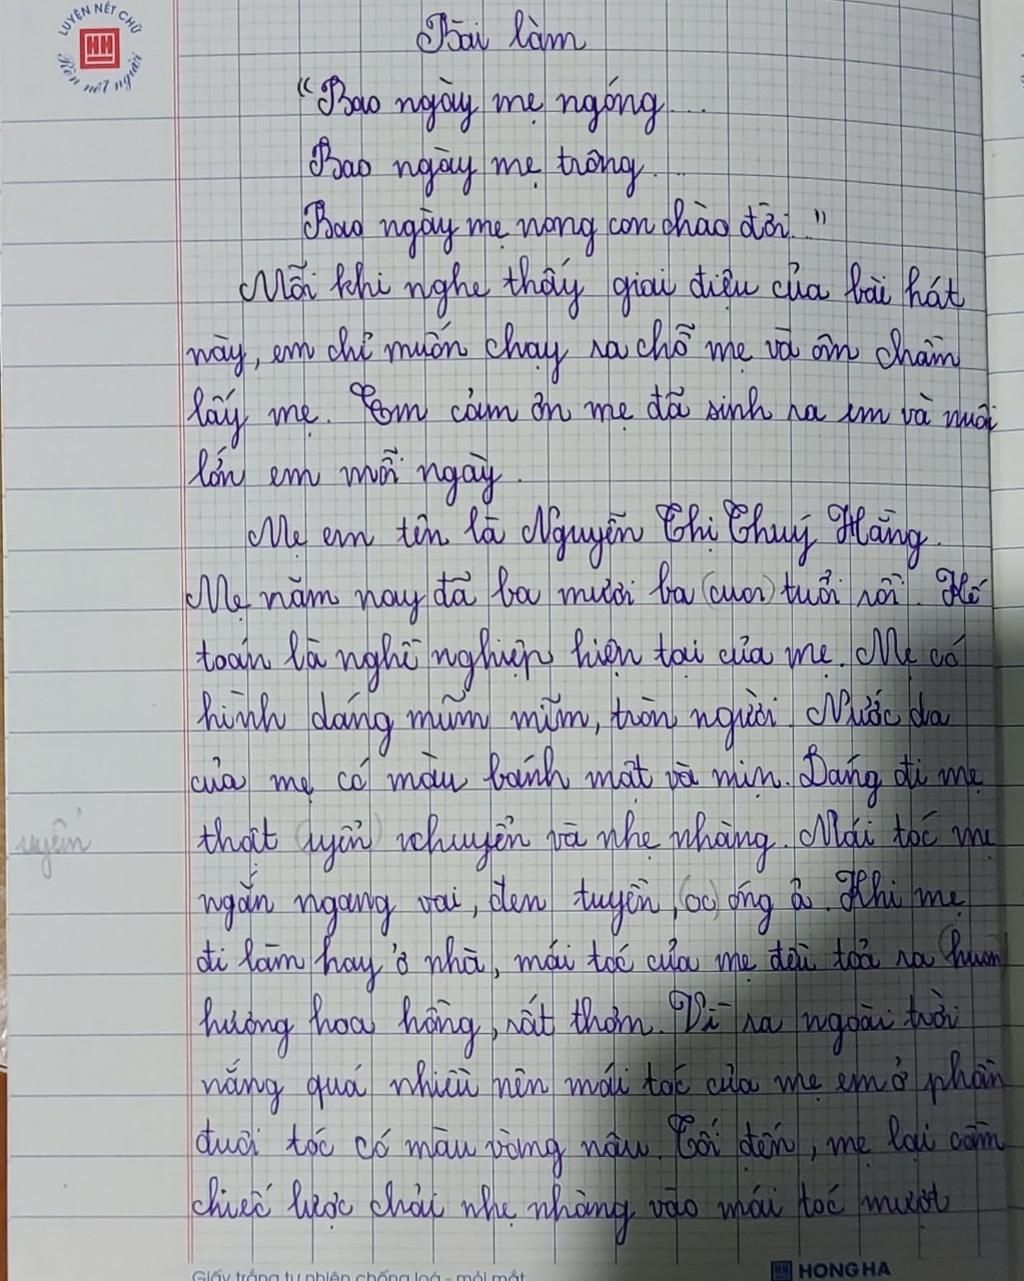 LUYỆN NÉT CHỮ
HH
Rèn nết người
Bài làm
"Bao ngày mẹ ngóng...
Bao ngày mẹ trông...
Bao ngày mẹ nong con chào đời..."
Mỗi khi nghe thấy giai điệu của bài hát
này, em chỉ muốn chạy ra chỗ mẹ và ôm chầm
lấy mẹ. Em cảm ơn mẹ đã sinh ra em và nuôi
lớn em mỗi ngày.
Mẹ em tên là Nguyễn Thị Thuý Hằng.
Mẹ năm nay đã ba mươi ba (cuơi) tuổi rồi. Kế
toán là nghề nghiệp hiện tại của mẹ. Mẹ có
hình dáng mũm mĩm, tròn người. Nước da
của mẹ có màu bánh mật và mịn. Dáng đi mẹ
uyển
thật (uyển) chuyển và nhẹ nhàng. Mái tóc mẹ
ngắn ngang vai, đen tuyền, (oc) óng ả. Khi mẹ
đi làm hay ở nhà, mái tóc của mẹ đều toả ra (hươn
hương hoa hồng, rất thơm. Vì ra ngoài trời
nắng quá nhiều nên mái tóc của mẹ em ở phần
đuôi tóc có màu vàng nâu. Tối đến, mẹ lại cầm
chiếc lược chải nhẹ nhàng vào mái tóc mượt
Giấy trắng tự nhiên chống loá - mỏi mắt
HH HONG HA